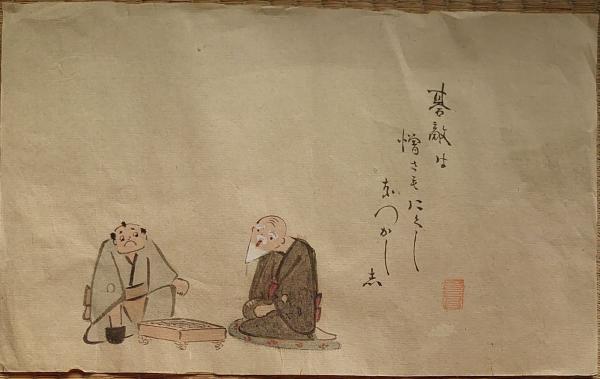 碁敵は
憎さもにくし
なつかし志